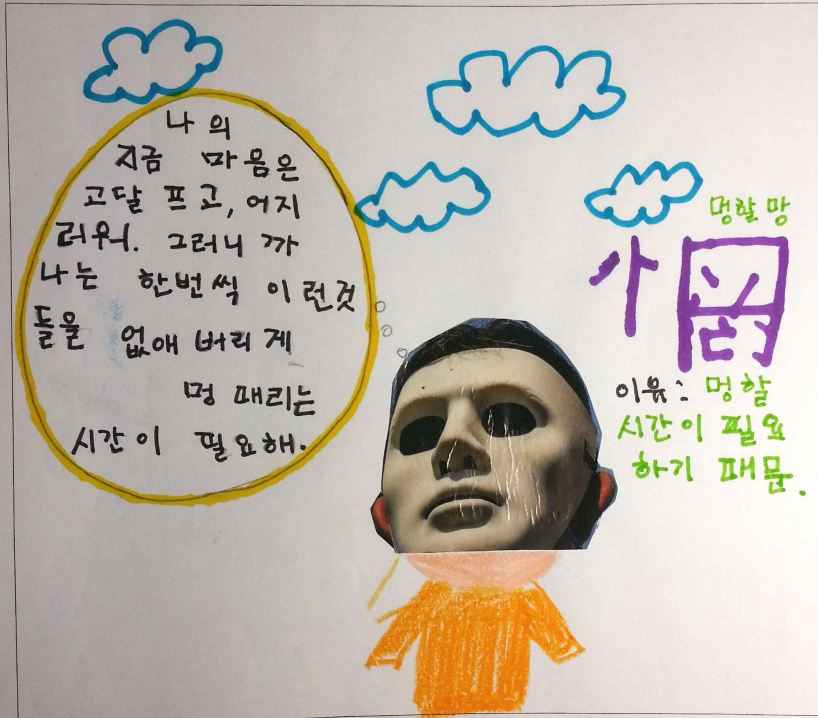 나의
지금 마음은
고달프고, 어지
러워. 그러니까
나는 한번씩 이런것
들을 없애버리게
멍 때리는
시간이 필요해.
멍할 망
惘
이유: 멍할
시간이 필요
하기 때문.